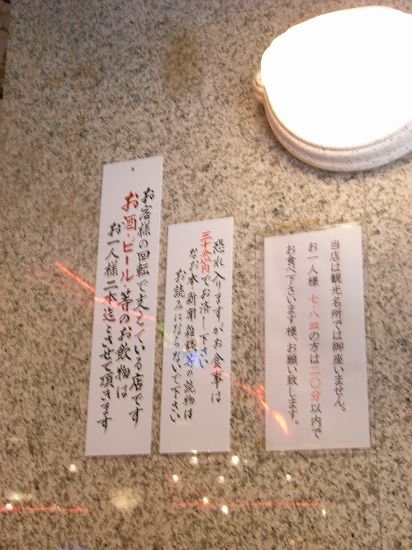 当店は観光名所では御座いません。
お一人様 七・八皿の方は二〇分以内で
お食べ下さいます様、お願い致します。
恐れ入りますがお食事は
三十分以内でお済し下さい
なお本・新聞・雑誌等の読物は
お読みにならないで下さい
お客様の回転で支えている店です
お酒・ビール等のお飲物は
お一人様二本迄とさせて頂きます